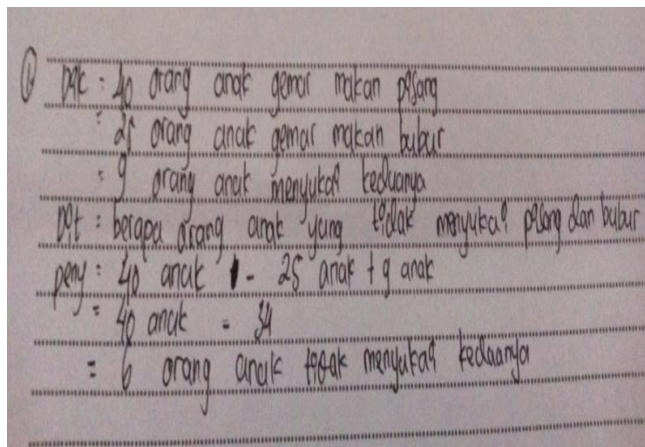 ① Dik : 40 orang anak gemar makan pisang
= 25 orang anak gemar makan bubur
= 9 orang anak menyukai keduanya
Dit = berapa orang anak yang tidak menyukai pisang dan bubur
peny = 40 anak - 25 anak + 9 anak
= 40 anak - 34
= 6 orang anak tidak menyukai keduanya